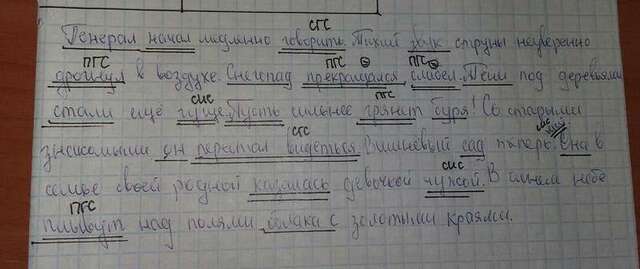 СГС
Генерал начал медленно говорить. Тихий звук струны неуверенно
ПГС ПГС ПГС
дрогнул в воздухе. Снегопад прекращался, слабел. Тени под деревьями
СИС ПГС
стали ещё гуще. Пусть сильнее грянет буря! Со старыми
СГС СИС
знакомыми он перестал видеться. Вишневый сад теперь. Она в
СИС
семье своей родной казалась девочкой чужой. В синем небе
ПГС
плывут над полями облака с золотыми краями.